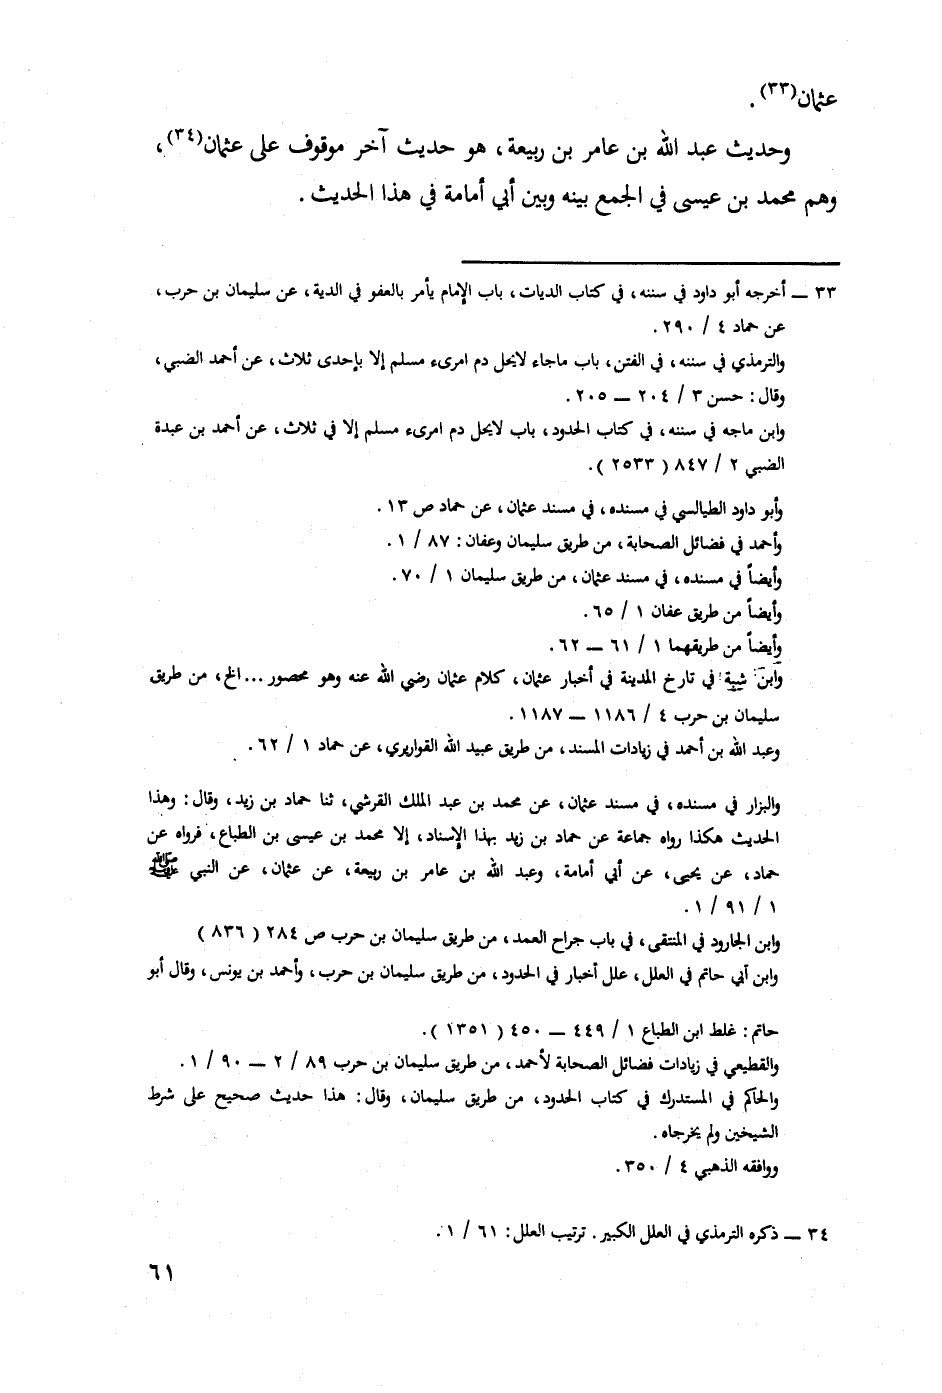 عثمان(٣٣) .
وحديث عبد الله بن عامر بن ربيعة ، هو حديث آخر موقوف على عثمان(٣٤) ،
وهم محمد بن عيسى في الجمع بينه وبين أبي أمامة في هذا الحديث .
٣٣ ــ أخرجه أبو داود في سننه ، في كتاب الديات ، باب الإمام يأمر بالعفو في الدية ، عن سليمان بن حرب ،
عن حماد ٤ / ٢٩٠ .
والترمذي في سننه ، في الفتن ، باب ماجاء لايحل دم امرىء مسلم إلا بإحدى ثلاث ، عن أحمد الضبي ،
وقال : حسن ٣ / ٢٠٤ ــ ٢٠٥ .
وابن ماجه في سننه ، في كتاب الحدود ، باب لايحل دم امرىء مسلم إلا في ثلاث ، عن أحمد بن عبدة
الضبي ٢ / ٨٤٧ ( ٢٥٣٣ ) .
وأبو داود الطيالسي في مسنده ، في مسند عثمان ، عن حماد ص ١٣ .
وأحمد في فضائل الصحابة ، من طريق سليمان وعفان : ٨٧ / ١ .
وأيضاً في مسنده ، في مسند عثمان ، من طريق سليمان ١ / ٧٠ .
وأيضاً من طريق عفان ١ / ٦٥ .
وأيضاً من طريقهما ١ / ٦١ ــ ٦٢ .
وابن شبة في تارخ المدينة في أخبار عثمان ، كلام عثمان رضي الله عنه وهو محصور ... الخ ، من طريق
سليمان بن حرب ٤ / ١١٨٦ ــ ١١٨٧ .
وعبد الله بن أحمد في زيادات المسند ، من طريق عبيد الله القواريري ، عن حماد ١ / ٦٢ .
والبزار في مسنده ، في مسند عثمان ، عن محمد بن عبد الملك القرشي ، ثنا حماد بن زيد ، وقال : وهذا
الحديث هكذا رواه جماعة عن حماد بن زيد بهذا الإسناد ، إلا محمد بن عيسى بن الطباع ، فرواه عن
حماد ، عن يحيى ، عن أبي أمامة ، وعبد الله بن عامر بن ربيعة ، عن عثمان ، عن النبي ﷺ
١ / ٩١ / ١ .
وابن الجارود في المنتقى ، في باب جراح العمد ، من طريق سليمان بن حرب ص ٢٨٤ ( ٨٣٦ )
وابن أبي حاتم في العلل ، علل أخبار في الحدود ، من طريق سليمان بن حرب ، وأحمد بن يونس ، وقال أبو
حاتم : غلط ابن الطباع ١ / ٤٤٩ ــ ٤٥٠ ( ١٣٥١ ) .
والقطيعي في زيادات فضائل الصحابة لأحمد ، من طريق سليمان بن حرب ٨٩ / ٢ ــ ٩٠ / ١ .
والحاكم في المستدرك في كتاب الحدود ، من طريق سليمان ، وقال : هذا حديث صحيح على شرط
الشيخين ولم يخرجاه .
ووافقه الذهبي ٤ / ٣٥٠ .
٣٤ ــ ذكره الترمذي في العلل الكبير . ترتيب العلل : ٦١ / ١ .
٦١